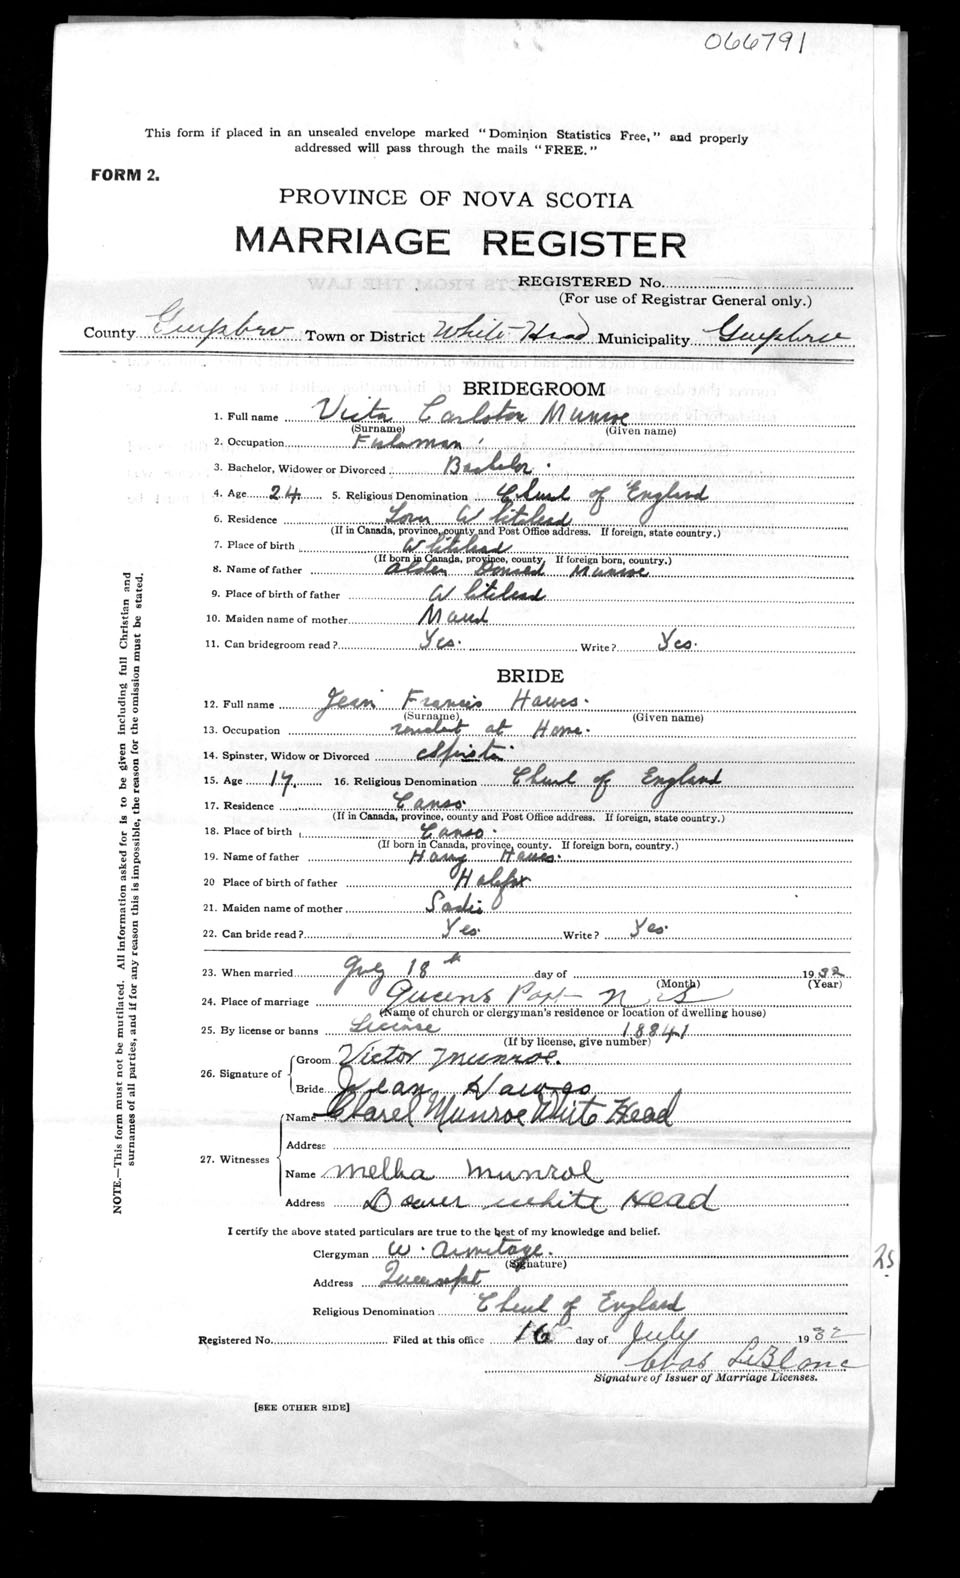 066791
This form if placed in an unsealed envelope marked "Dominion Statistics Free," and properly
addressed will pass through the mails "FREE."
FORM 2.
PROVINCE OF NOVA SCOTIA
MARRIAGE REGISTER
REGISTERED No.
(For use of Registrar General only.)
County Guysboro Town or District White Head Municipality Guysboro
BRIDEGROOM
1. Full name Victor Carlston Munroe
(Surname) (Given name)
2. Occupation Fisherman
3. Bachelor, Widower or Divorced Bachelor.
4. Age 24 5. Religious Denomination Church of England
6. Residence Lower Whitehead
(If in Canada, province, county and Post Office address. If foreign, state country.)
7. Place of birth Whitehead
(If born in Canada, province, county. If foreign born, country.)
8. Name of father Alden Donald Munroe
9. Place of birth of father Whitehead
10. Maiden name of mother Maud
11. Can bridegroom read? Yes. Write? Yes.
BRIDE
12. Full name Jean Francis Hawes.
(Surname) (Given name)
13. Occupation at Home.
14. Spinster, Widow or Divorced Spinster
15. Age 17. 16. Religious Denomination Church of England
17. Residence Canso.
(If in Canada, province, county and Post Office address. If foreign, state country.)
18. Place of birth Canso.
(If born in Canada, province, county. If foreign born, country.)
19. Name of father Harry Hawes.
20 Place of birth of father Halifax
21. Maiden name of mother Sadie
22. Can bride read? Yes. Write? Yes.
23. When married July 18th day of 1932
(Month) (Year)
24. Place of marriage Queens Port N.S
(Name of church or clergyman's residence or location of dwelling house)
25. By license or banns License 18841
(If by license, give number)
26. Signature of Groom Victor Munroe.
Bride Jean Hawes
27. Witnesses Name Munroe White Head
Address
Name Melba Munroe
Address Lower White Head
I certify the above stated particulars are true to the best of my knowledge and belief.
Clergyman W. Armitage.
(Signature)
Address Queensport
Religious Denomination Church of England
Registered No. Filed at this office 16 day of July 1932
Chas LeBlanc
Signature of Issuer of Marriage Licenses.
[SEE OTHER SIDE]
NOTE.—This form must not be mutilated. All information asked for is to be given including full Christian and
surnames of all parties, and if for any reason this is impossible, the reason for the omission must be stated.
25